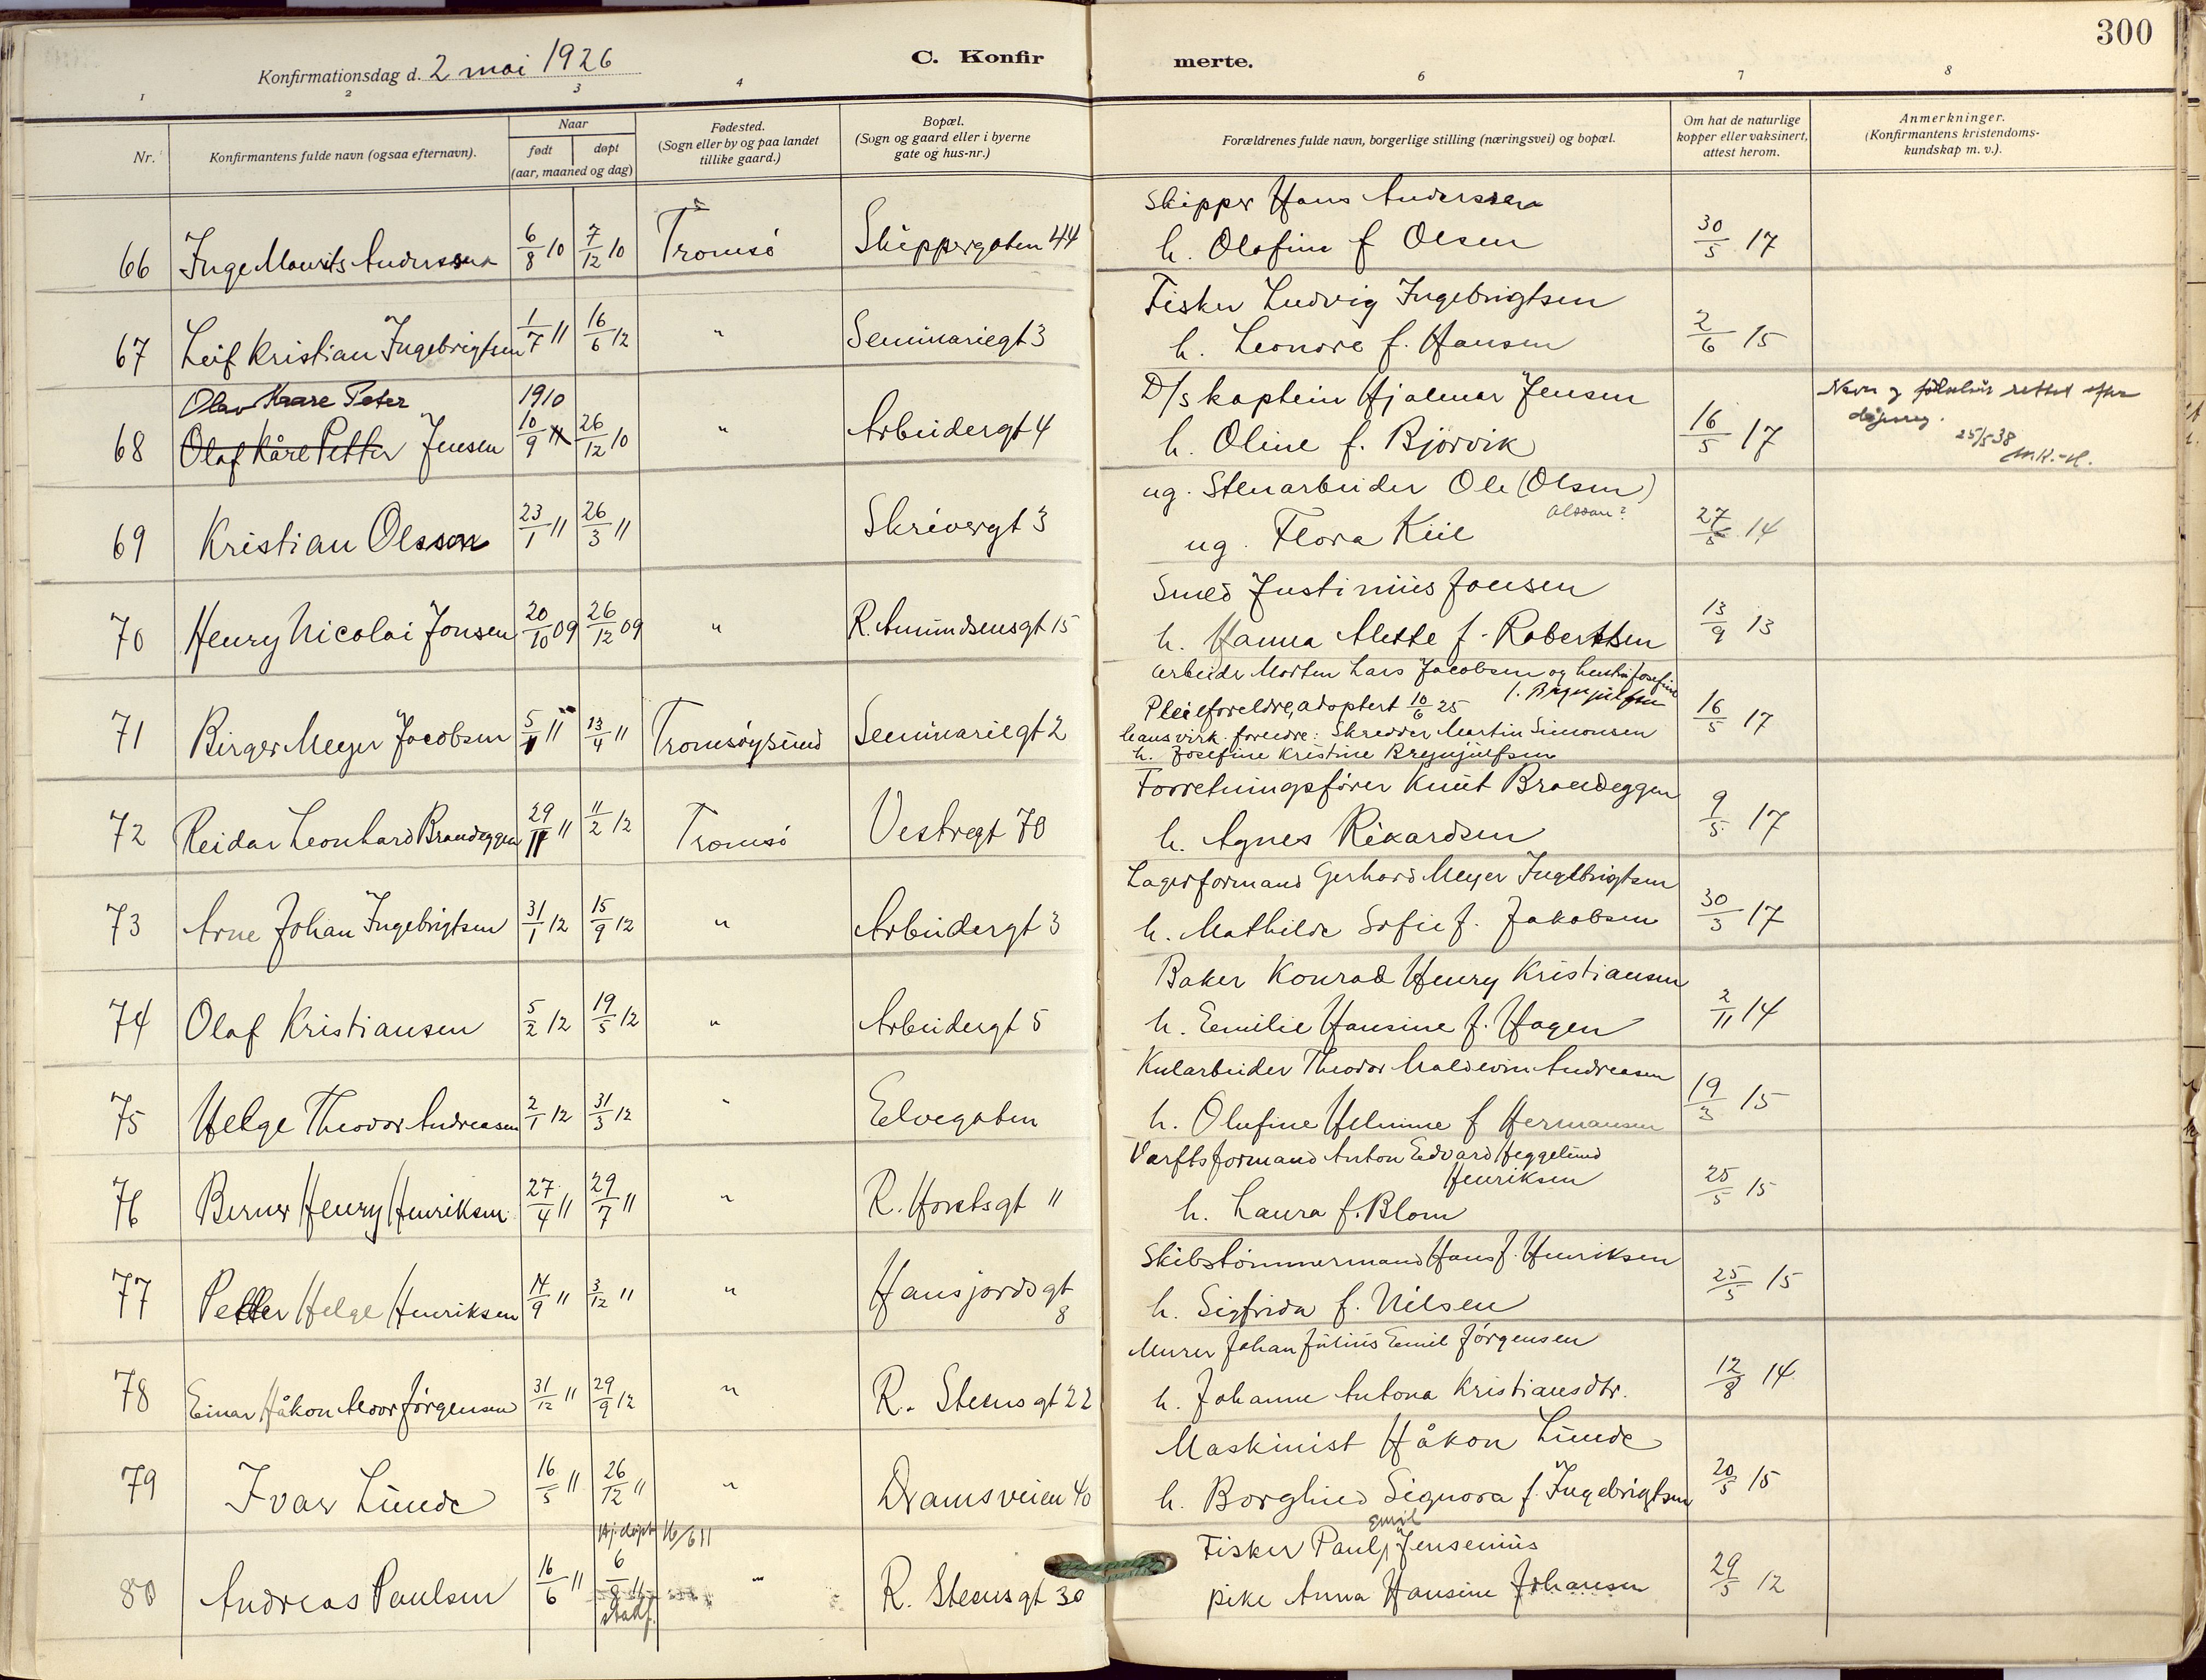 300
Konfirmationsdag d. 2 mai 1926
C. Konfirmerte.
1 2 3 4 6 7 8
Nr.
Konfirmantens fulde navn (ogsaa efternavn).
Naar
født døpt
(aar, maaned og dag)
Fødested.
(Sogn eller by og paa landet
tillike gaard.)
Bopæl.
(Sogn og gaard eller i byerne
gate og hus-nr.)
Forældrenes fulde navn, borgerlige stilling (næringsvei) og bopæl.
Om hat de naturlige
kopper eller vaksinert,
attest herom.
Anmerkninger.
(Konfirmantens kristendoms-
kundskap m. v.).
Skipper Hans Anderssen
66 Inge Mourits Anderssen 6/8 10 7/12 10 Tromsö Skippergaten 44 h. Olefine f Olsen 30/5 17
Fisker Ludvig Ingebrigtsen
67 Leif Kristian Ingebrigtsen 1/7 11 16/6 12 " Seminariegt 3 h. Leonore f. Hansen 2/6 15
Olav Kaare Peter 1910 D/s kaptein Hjalmar Jensen Navn og rettet efter
68 Olaf Kåre Petter Jensen 10/9 11 26/12 10 " Arbeidergt 4 h. Oline f. Bjorvik 16/5 17
25/5 38
M.K.-H.
ug. Stenarbeider Ole (Olsen)
Olsson?
69 Kristian Olsson 23/1 11 26/3 11 Skrivergt 3 ug. Flora Kiil 27/5 14
Smed Justinius Jonsen
70 Henry Nicolai Jonsen 20/10 09 26/12 09 " R. Amundsensgt 15 h. Hanna Alette f. Robertsen 13/9 13
Arbeider Morten Lars Jacobsen og hustru Josefine
f. Brynjulfsen
Pleieforeldre, adoptert 10/6 25
71 Birger Meyer Jacobsen 5/1 11 13/4 11 Tromsøysund Seminariegt 2 hans virk. foreldre: Skredder Martin Simonsen 16/5 17
h. Josefine Kristine Brynjulfsen
Forretningsfører Knut Brandeggen
72 Reidar Leonhard Brandeggen 29/11 11 11/2 12 Tromsö Vestregt 70 h. Agnes Rikardsen 9/5 17
Lagerformand Gerhard Meyer Ingebrigtsen
73 Arne Johan Ingebrigtsen 31/1 12 15/9 12 " Arbeidergt 3 h. Mathilde Sofie f. Jakobsen 30/3 17
Baker Konrad Henry Kristiansen
74 Olaf Kristiansen 5/2 12 19/5 12 " Arbeidergt 5 h. Emilie Hansine f. Hagen 2/11 14
Kularbeider Theodor Andreasen
75 Helge Theodor Andreasen 2/1 12 31/3 12 " Elvegaten h. Olufine Helmine f Hermansen 19/3 15
Varftsformand Anton Edvard Heggelund
Henriksen
76 Berner Henry Henriksen 27/4 11 29/7 11 " R. Horstsgt 11 h. Laura f. Blom 25/5 15
Skibstömmermand Hans J. Henriksen
77 Petter Helge Henriksen 14/9 11 3/12 11 " Hansjordsgt 8 h. Sigfrida f. Nilsen 25/5 15
Murer Johan Julius Emil Jörgensen
78 Einar Håkon Moor Jörgensen 31/12 11 29/9 12 " R. Steensgt 22 h. Johanne Antona Kristiansdtr. 12/8 14
Maskinist Håkon Lunde
79 Ivar Lunde 16/5 11 26/12 11 " Dramsveien 40 h. Borghild Signora f. Ingebrigtsen 20/5 15
Hj. døpt 16/6 11
Emil
Fisker Paul Jensenius
80 Andreas Paulsen 16/6 11 6/8 11 stadf. " R. Steensgt 30 pike Anna Hansine Johansen 29/5 12